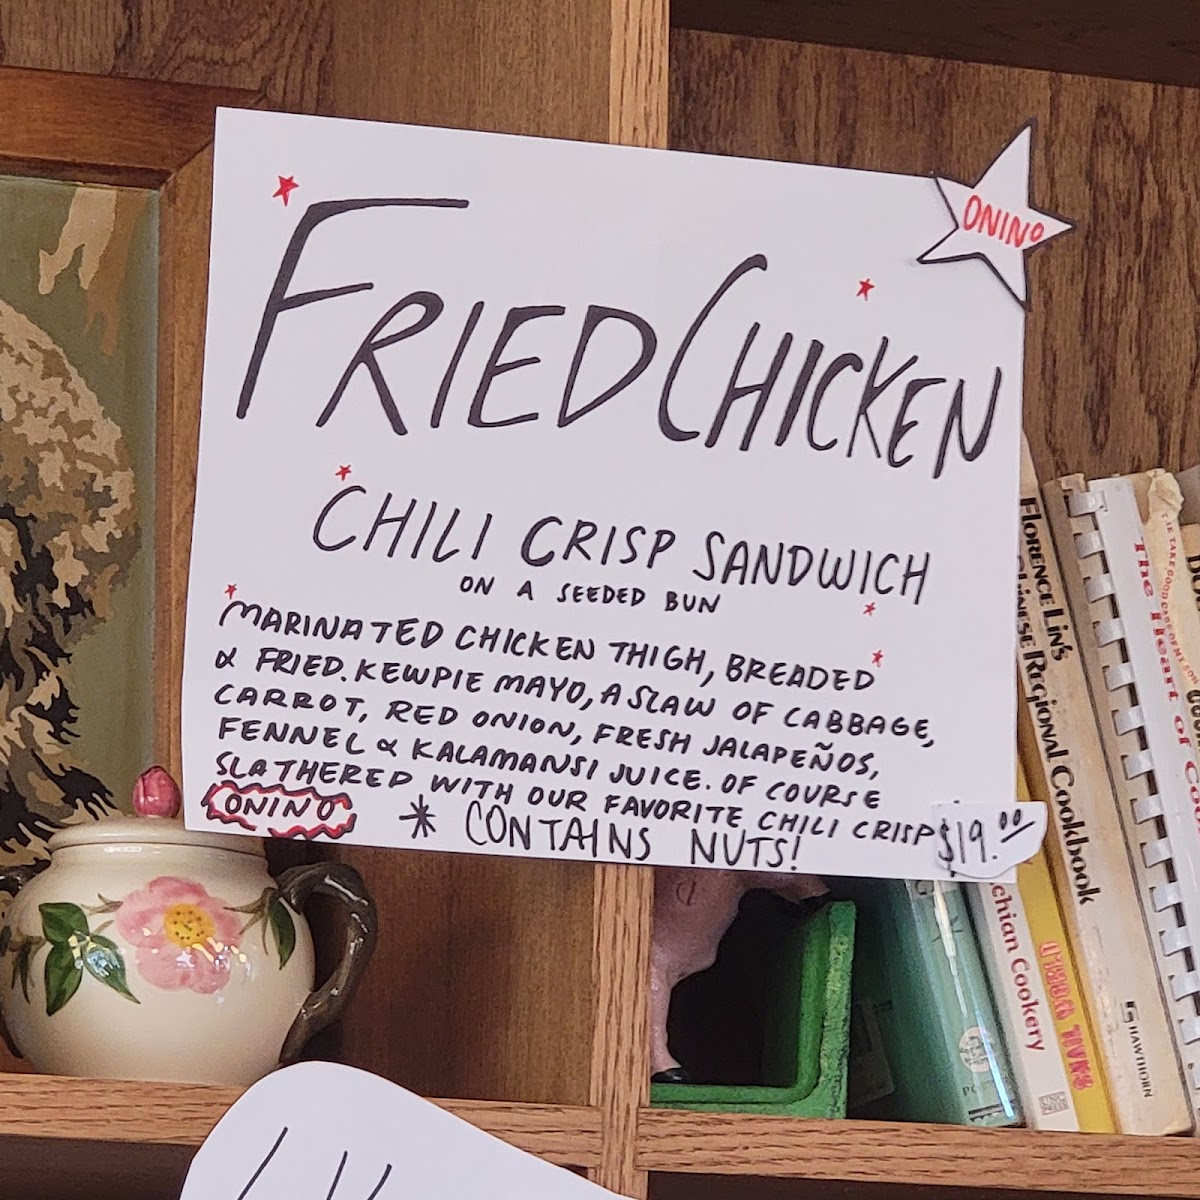 ONINO
FRIED CHICKEN
CHILI CRISP SANDWICH
ON A SEEDED BUN
MARINATED CHICKEN THIGH, BREADED
& FRIED. KEWPIE MAYO, A SLAW OF CABBAGE,
CARROT, RED ONION, FRESH JALAPEÑOS,
FENNEL & KALAMANSI JUICE. OF COURSE
SLATHERED WITH OUR FAVORITE CHILI CRISP
ONINO
* CONTAINS NUTS!
$19.00
FLORENCE LIN'S
CHINESE REGIONAL COOKBOOK
HAWTHORN
The Heart of
chian Cookery